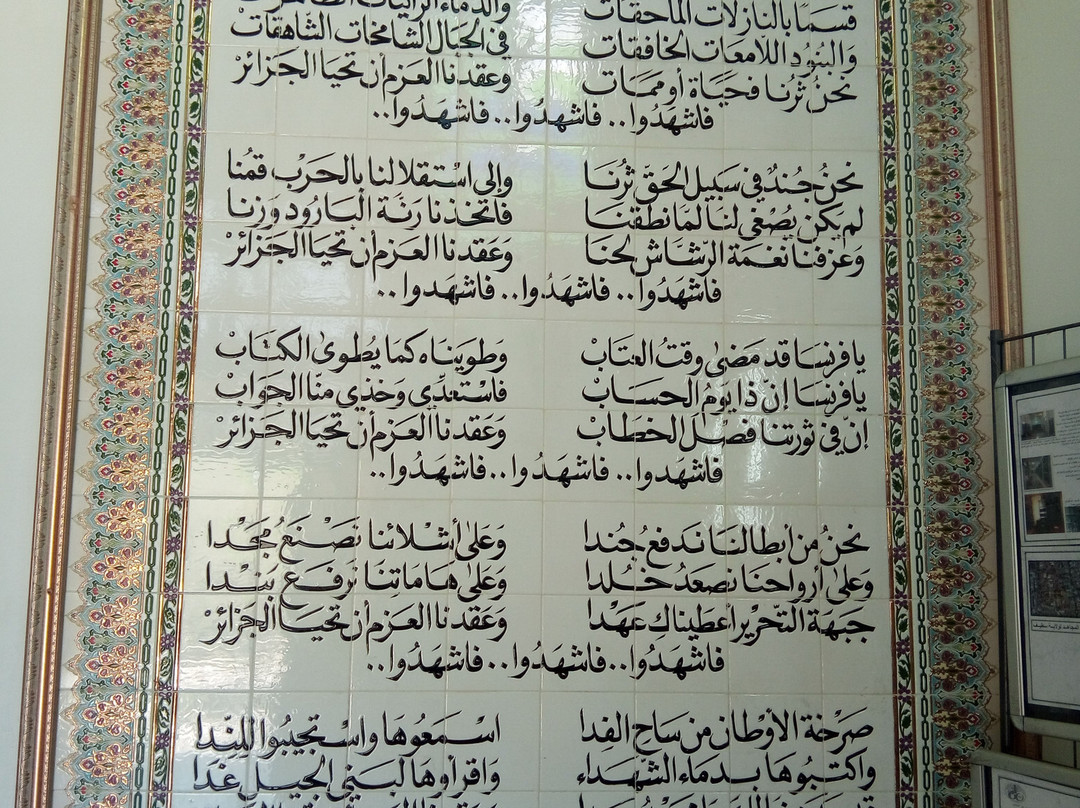 قسمًا بالنازلات الماحقات والدماء الزاكيات الطاهرات
والبنود اللامعات الخافقات في الجبال الشامخات الشاهقات
نحن ثرنا فحياة أو ممات وعقدنا العزم أن تحيا الجزائر
فاشهدوا.. فاشهدوا.. فاشهدوا..
نحن جند في سبيل الحق ثرنا وإلى استقلالنا بالحرب قمنا
لم يكن يصغى لنا لما نطقنا فاتخذنا رنة البارود وزنا
وعزفنا نغمة الرشاش لحنا وعقدنا العزم أن تحيا الجزائر
فاشهدوا.. فاشهدوا.. فاشهدوا..
يا فرنسا قد مضى وقت العتاب وطويناه كما يطوى الكتاب
يا فرنسا إن ذا يوم الحساب فاستعدي وخذي منا الجواب
إن في ثورتنا فصل الخطاب وعقدنا العزم أن تحيا الجزائر
فاشهدوا.. فاشهدوا.. فاشهدوا..
نحن من أبطالنا ندفع جندا وعلى أشلائنا نصنع مجدا
وعلى أرواحنا نصعد خلدا وعلى هاماتنا نرفع بندا
جبهة التحرير أعطيناك عهدا وعقدنا العزم أن تحيا الجزائر
فاشهدوا.. فاشهدوا.. فاشهدوا..
صرخة الأوطان من ساح الفدا اسمعوها واستجيبوا للندا
واكتبوها بدماء الشهداء واقرأوها لبني الجيل غدا